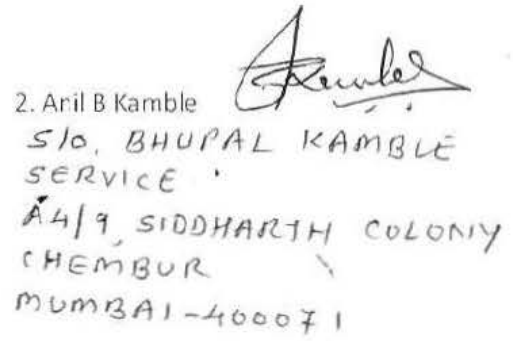 2. Anil B Kamble
S/o. BHUPAL KAMBLE
SERVICE
A4/9, SIDDHARTH COLONY
CHEMBUR
MUMBAI-400071